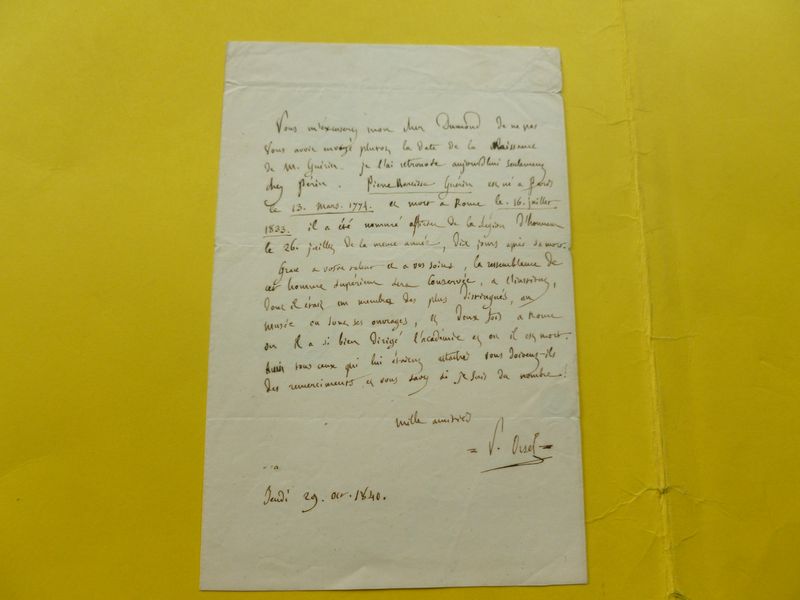 Vous m'excuserez mon cher Dumond de ne pas
vous avoir envoyé plutot la date de la Naissance
de M. Guérin. je l'ai retrouvée aujourd'hui seulement
chez Périn. Pierre Narcisse Guérin est né a Paris
le 13. mars. 1774. et mort a Rome le 16. juillet
1833. il a été nommé officier de la Légion d'honneur
le 26. juillet de la meme année, dix jours après sa mort.
Grace a votre talent et a vos soins, la ressemblance de
cet homme supérieur sera conservée, a l'institut,
dont il était un membre des plus distingués, au
musée ou sont ses ouvrages, et deux fois a Rome
ou il a si bien dirigé l'académie et ou il est mort.
Aussi tous ceux qui lui étaient attachés vous doivent-ils
des remerciments et vous savez si je suis du nombre!
mille amitiés
= V. Orsel =
Jeudi 29. oct. 1840.